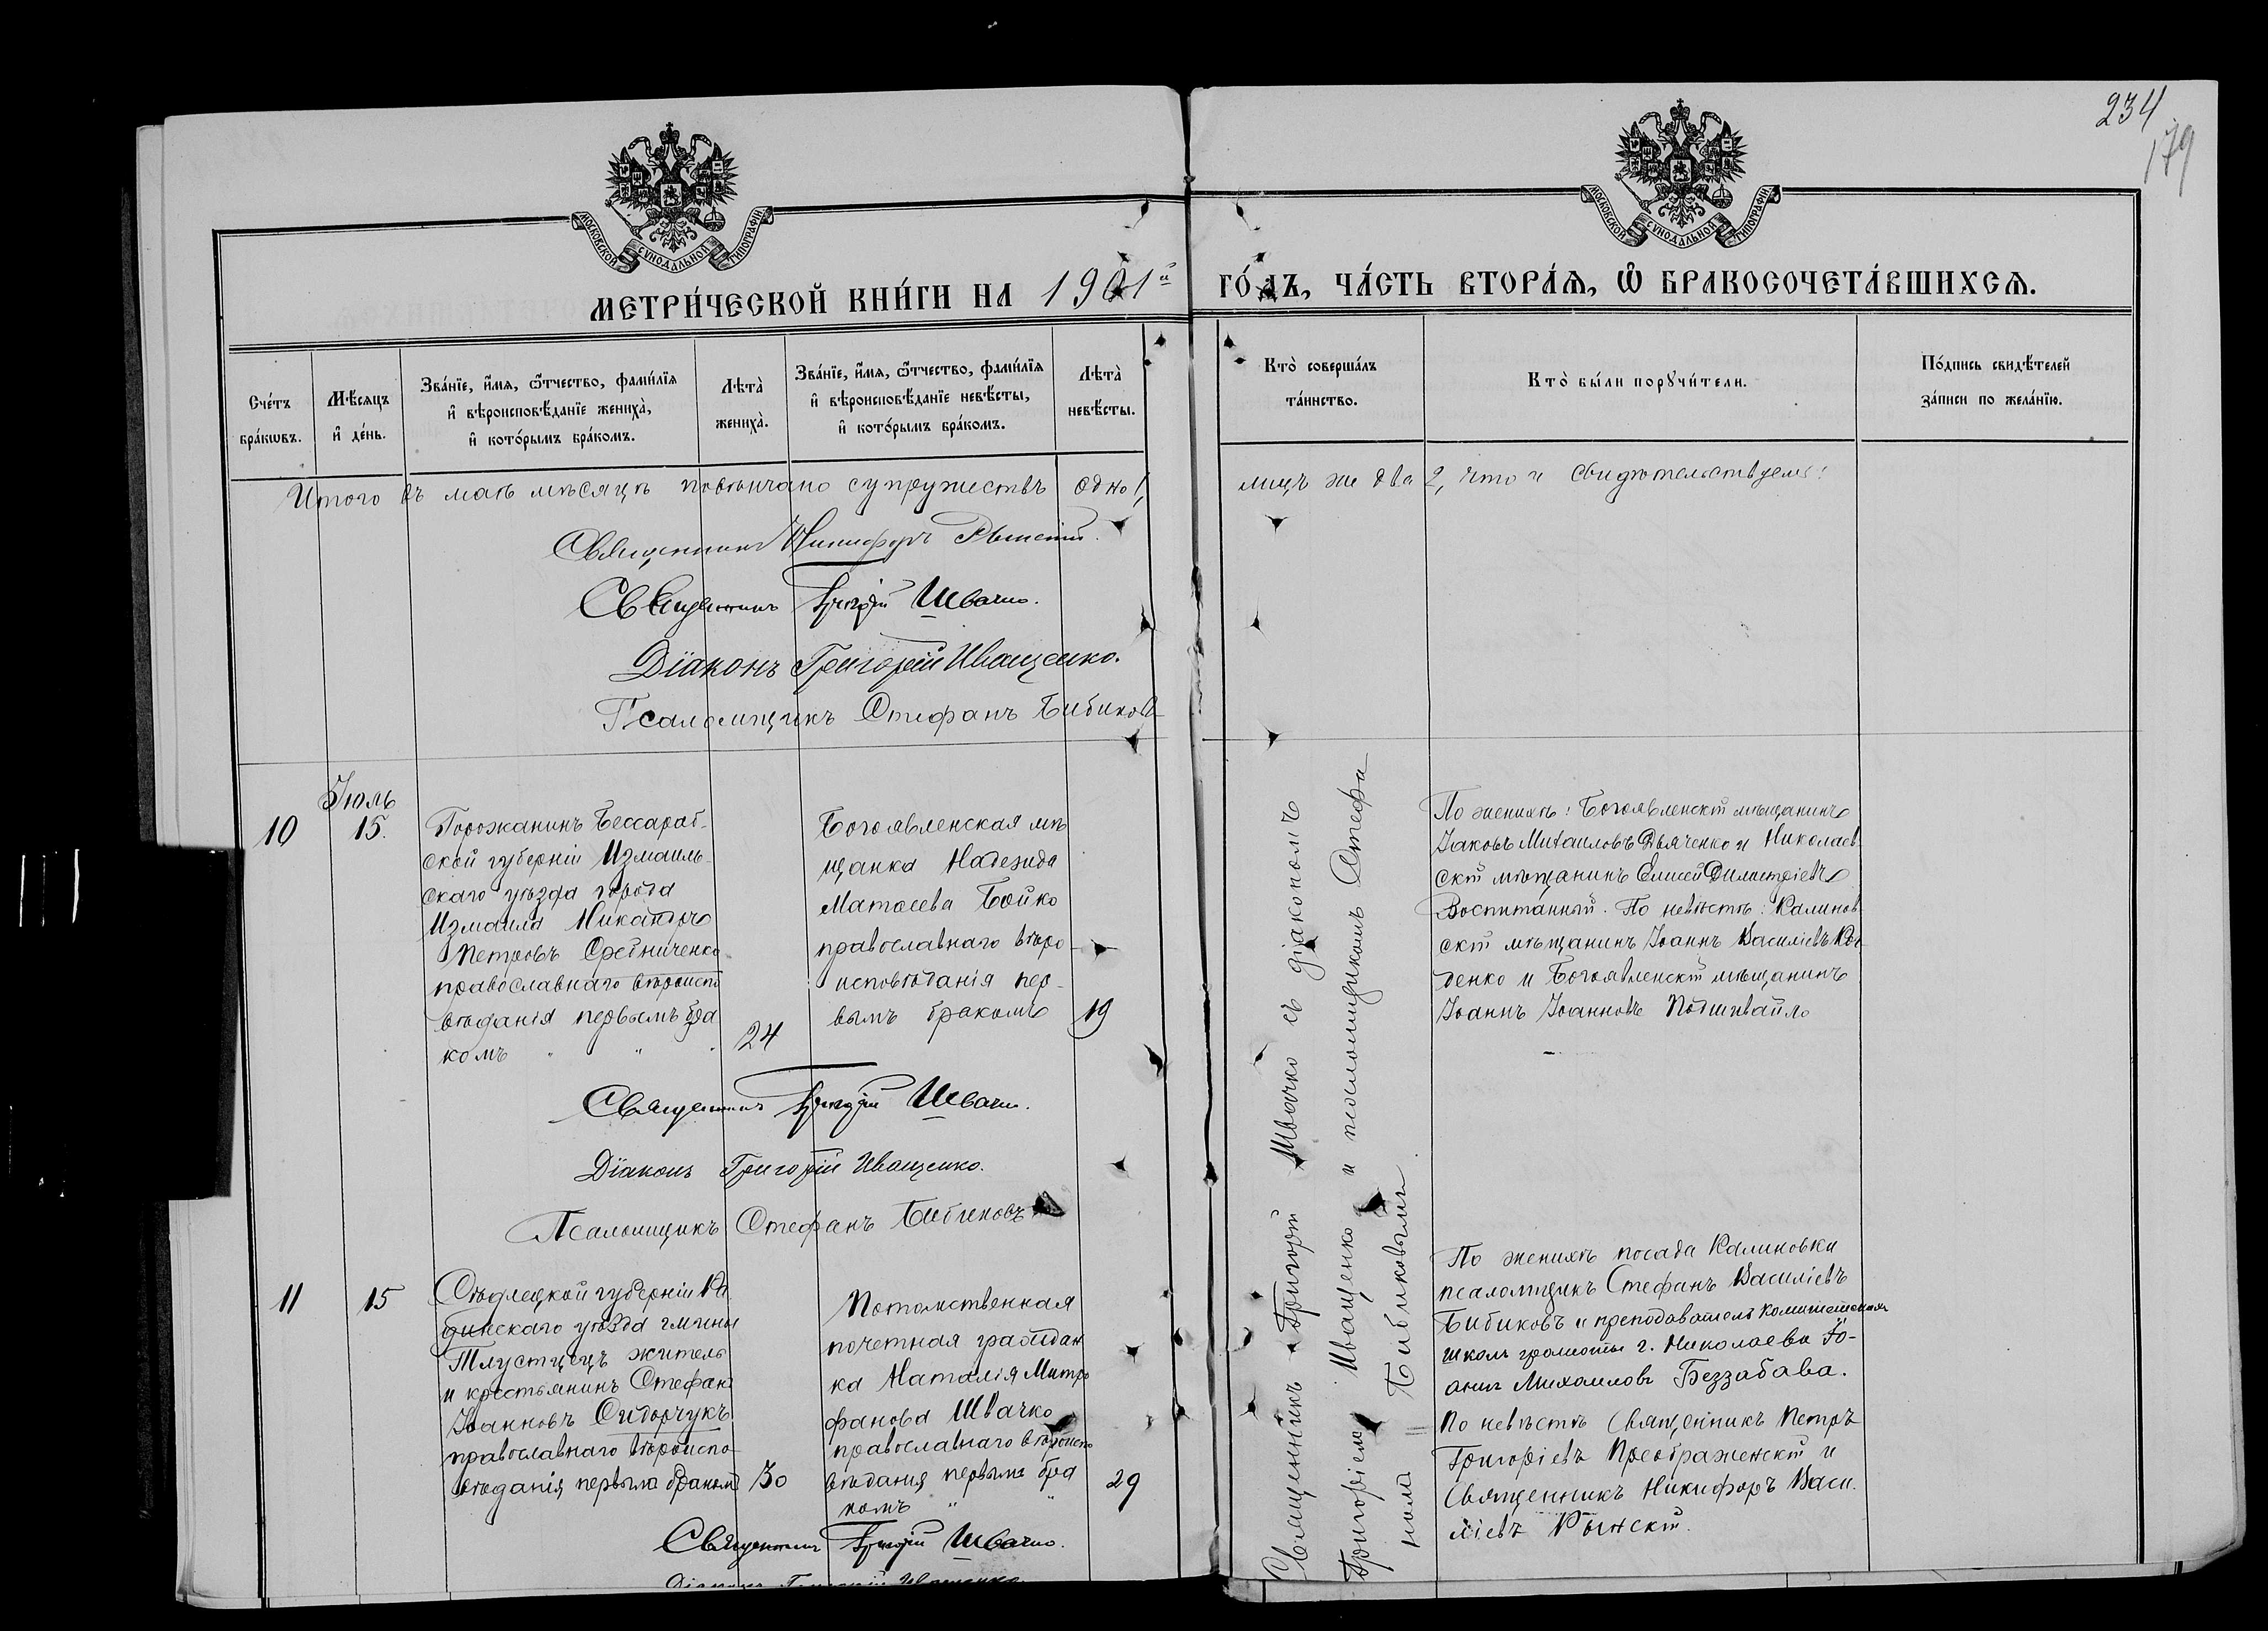 234
179
МОСКОВСКОЙ СѴНОДАЛЬНОЙ ТИПОГРАФІИ
МОСКОВСКОЙ СѴНОДАЛЬНОЙ ТИПОГРАФІИ
МЕТРИ́ЧЕСКОЙ КНИ́ГИ НА 1901й ГО́ДЪ, ЧА́СТЬ ВТОРА́Ѧ, Ѽ БРАКОСОЧЕТА́ВШИХСѦ.
Сче́тъ
бра́кѡвъ.
Мѣ́сяцъ
и҆ де́нь.
Зва́нїе, и҆́мя, ѻ҆́тчество, фами́лїя
и҆ вѣроисповѣ́данїе жениха̀,
и҆ кото́рымъ бра́комъ.
Лѣта̀
жениха̀.
Зва́нїе, и҆́мя, ѻ҆́тчество, фами́лїя
и҆ вѣроисповѣ́данїе невѣ́сты,
и҆ кото́рымъ бра́комъ.
Лѣта̀
невѣ́сты.
Кто̀ соверша́лъ
та́инство.
Кто̀ бы́ли порꙋчи́тели.
По́дпись свидѣ́телей
за́писи по жела́нїю.
Итого въ маѣ мѣсяцѣ повѣнчано супружествъ одно 1, лицъ же два 2, что и свидѣтельствуемъ:
Священникъ Никифоръ Рынскій.
Священникъ Григорій Швачко.
Діаконъ Григорій Иващенко.
Псаломщикъ Стефанъ Бибиковъ
Іюль
10
15.
Горожанинъ Бессараб-
ской губерніи Измаиль-
скаго уѣзда города
Измаила Никаноръ
Петровъ Средниченко
православнаго вѣроиспо
вѣданія первымъ бра
комъ " "
24
Богоявленская мѣ
щанка Надежда
Матѳеева Бойко
православнаго вѣро-
исповѣданія пер-
вымъ бракомъ
19
Священникъ Григорій Швачко съ діакономъ
Григоріемъ Иващенко и псаломщикомъ Стефа
номъ Бибиковымъ
По женихѣ: Богоявленскій мѣщанинъ
Іаковъ Михаиловъ Дьяченко и Николаев
скій мѣщанинъ Елисей Димитріевъ
Воспитанный. По невѣстѣ: Калинов
скій мѣщанинъ Іоаннъ Василіевъ
денко и Богоявленскій мѣщанинъ
Іоаннъ Іоанновъ Подшивайло
Священникъ Григорій Швачко.
Діаконъ Григорій Иващенко.
Псаломщикъ Стефанъ Бибиковъ
11
15
Сѣдлецкой губерніи Ра
динскаго уѣзда гмины
Тлустецъ житель
и крестьянинъ Стефанъ
Іоанновъ Сидорчукъ
православнаго вѣроиспо-
вѣданія первымъ бракомъ
30
Потомственная
почетная граждан
ка Наталія Митро
фанова Швачко
православнаго вѣроиспо
вѣданія первымъ бра
комъ " "
29
По женихѣ посада Калиновки
псаломщикъ Стефанъ Василіевъ
Бибиковъ и преподаватель
школы грамоты г. Николаева Іо-
аннъ Михаиловъ Беззабава.
По невѣстѣ Священникъ Петръ
Григоріевъ Преображенскій и
Священникъ Никифоръ Васи-
ліевъ Рынскій.
Священникъ Григорій Швачко.
Діаконъ Григорій Иващенко